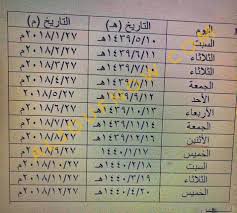 اليوم التاريخ (هـ) التاريخ (م)
السبت ١٤٣٩/٥/١٠هـ ٢٠١٨/١/٢٧م
الثلاثاء ١٤٣٩/٦/١١هـ ٢٠١٨/٢/٢٧م
الثلاثاء ٢٠١٨/٣/٢٧م
الجمعة ١٤٣٩/٨/١١هـ ٢٠١٨/٤/٢٧م
الأحد ١٤٣٩/٩/١٢هـ ٢٠١٨/٥/٢٧م
الأربعاء ١٤٣٩/١٠/١٣هـ ٢٠١٨/٦/٢٧م
الجمعة ١٤٣٩/١١/١٤هـ ٢٠١٨/٧/٢٧م
الأثنين ١٤٣٩/١٢/١٦هـ ٢٠١٨/٨/٢٧م
الخميس ١٤٤٠/١/١٧هـ ٢٠١٨/٩/٢٧م
السبت ١٤٤٠/٢/١٨هـ ٢٠١٨/١٠/٢٧م
الثلاثاء ١٤٤٠/٣/١٩هـ ٢٠١٨/١١/٢٧م
الخميس ١٤٤٠/٤/٢٠هـ ٢٠١٨/١٢/٢٧م